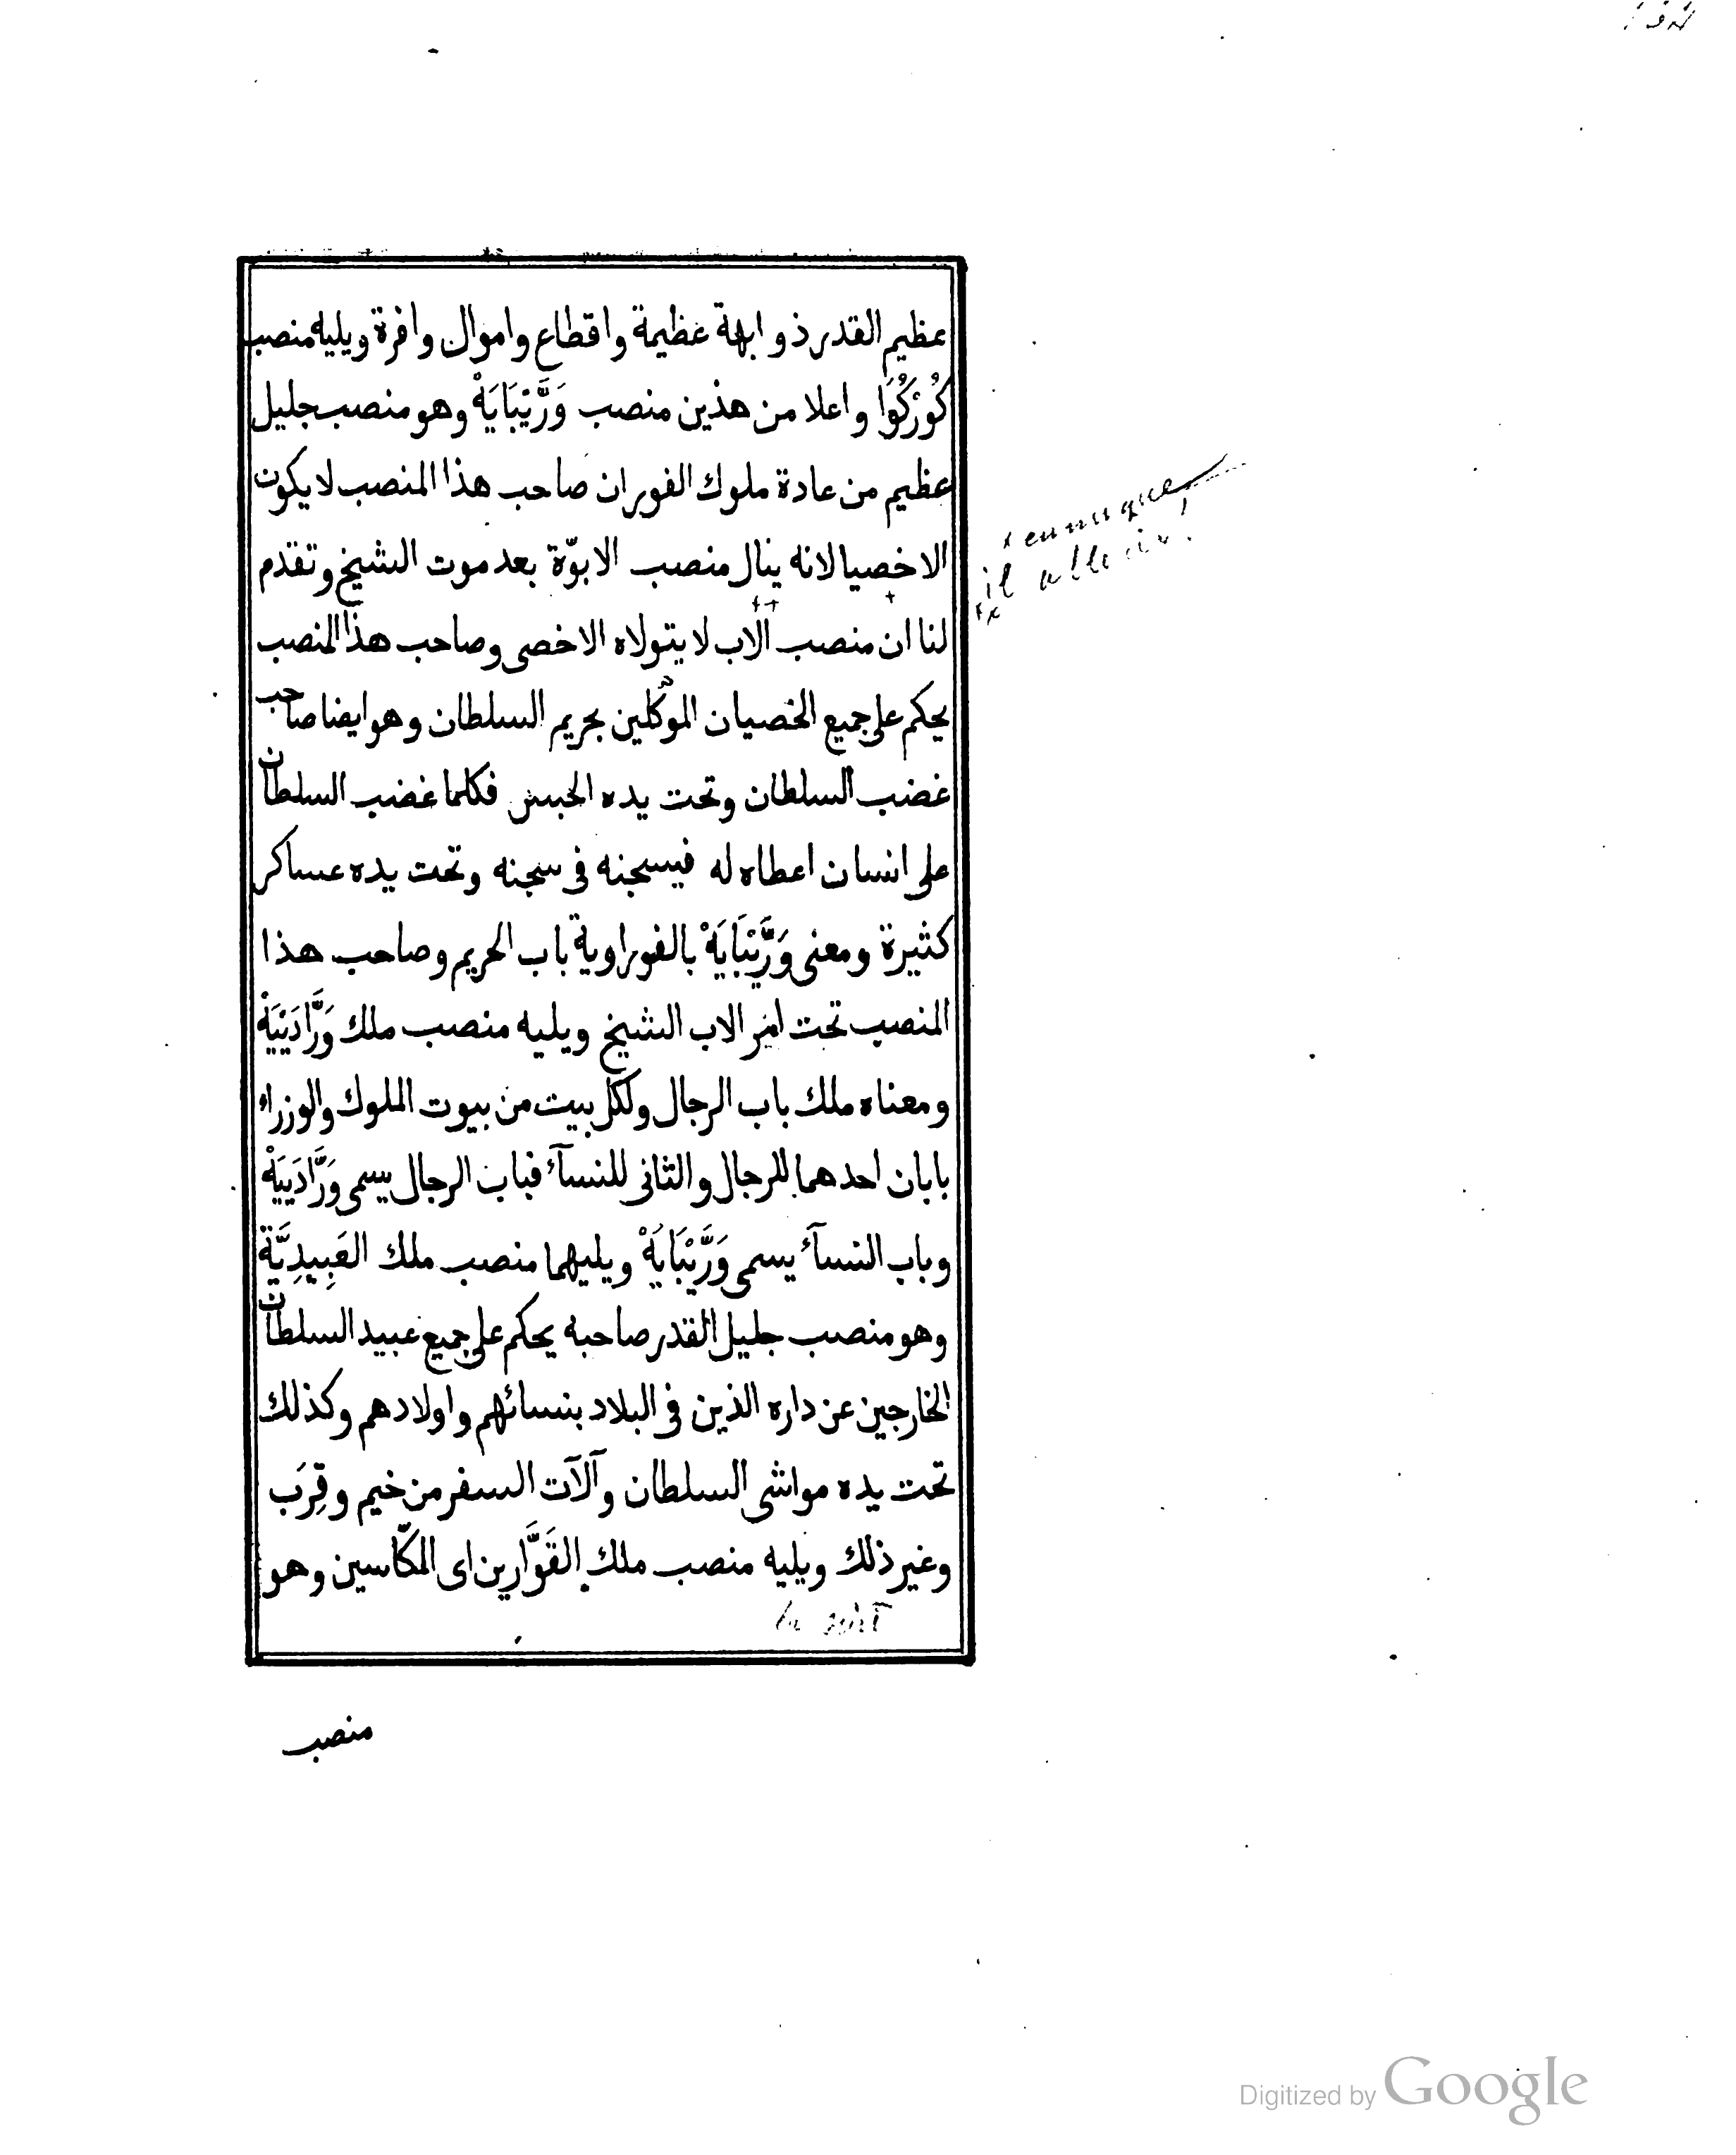 عظيم القدر ذو ابهة عظيمة واقطاع واموال وافرة ويليه منصب
كُورْكُوَا واعلا من هذين منصب وَرَّيْبَايَهْ وهو منصب جليل
عظيم من عادة ملوك الفور ان صاحب هذا المنصب لا يكون
الا خصيا لانه ينال منصب الابوّة بعد موت الشيخ وتقدم
لنا ان منصب الاب لا يتولاه الا خصى وصاحب هذا المنصب
يحكم على جميع الخصيان الموكّلين بحريم السلطان وهو ايضا صاحب
غضب السلطان وتحت يده الحبس فكلما غضب السلطان
على انسان اعطاه له فيسجنه فى سجنه وتحت يده عساكر
كثيرة ومعنى وَرَّيْبَايَهْ بالفوراوية باب الحريم وصاحب هذا
المنصب تحت امر الاب الشيخ ويليه منصب ملك وَرَّادَيْيَهْ
ومعناه ملك باب الرجال ولكل بيت من بيوت الملوك والوزراء
بابان احدهما للرجال والثانى للنسآء فباب الرجال يسمى وَرَّادَيَيَهْ
وباب النسآء يسمى وَرَّيْبَايَهْ ويليهما منصب ملك العَبِيدِيَّة
وهو منصب جليل القدر صاحبه يحكم على جميع عبيد السلطان
الخارجين عن داره الذين فى البلاد بنسائهم واولادهم وكذلك
تحت يده مواشى السلطان وآلآت السفر من خيم وقِرَب
وغير ذلك ويليه منصب ملك القَوَّارين اى المكّاسين وهو
منصب
x eunuque,
il